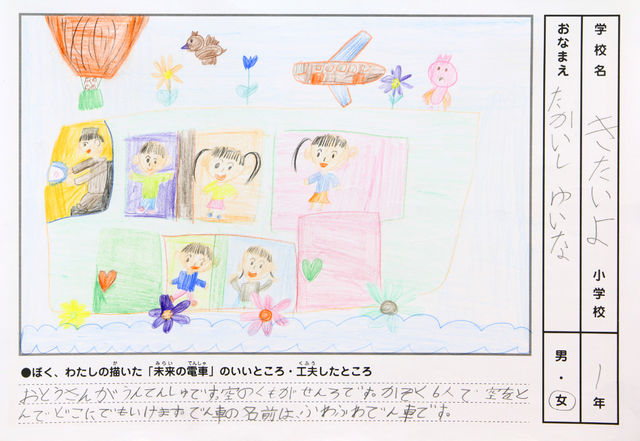 学校名 きたいよ 小学校 1年
おなまえ たかいし ゆいな 男・女
●ぼく、わたしの描いた「未来の電車」のいいところ・工夫したところ
おとうさんがうんてんしゅです。空のくもがせんろです。かぞく6人で 空をと
んでどこにでもいけます でん車の名前は、ふわふわでん車です。